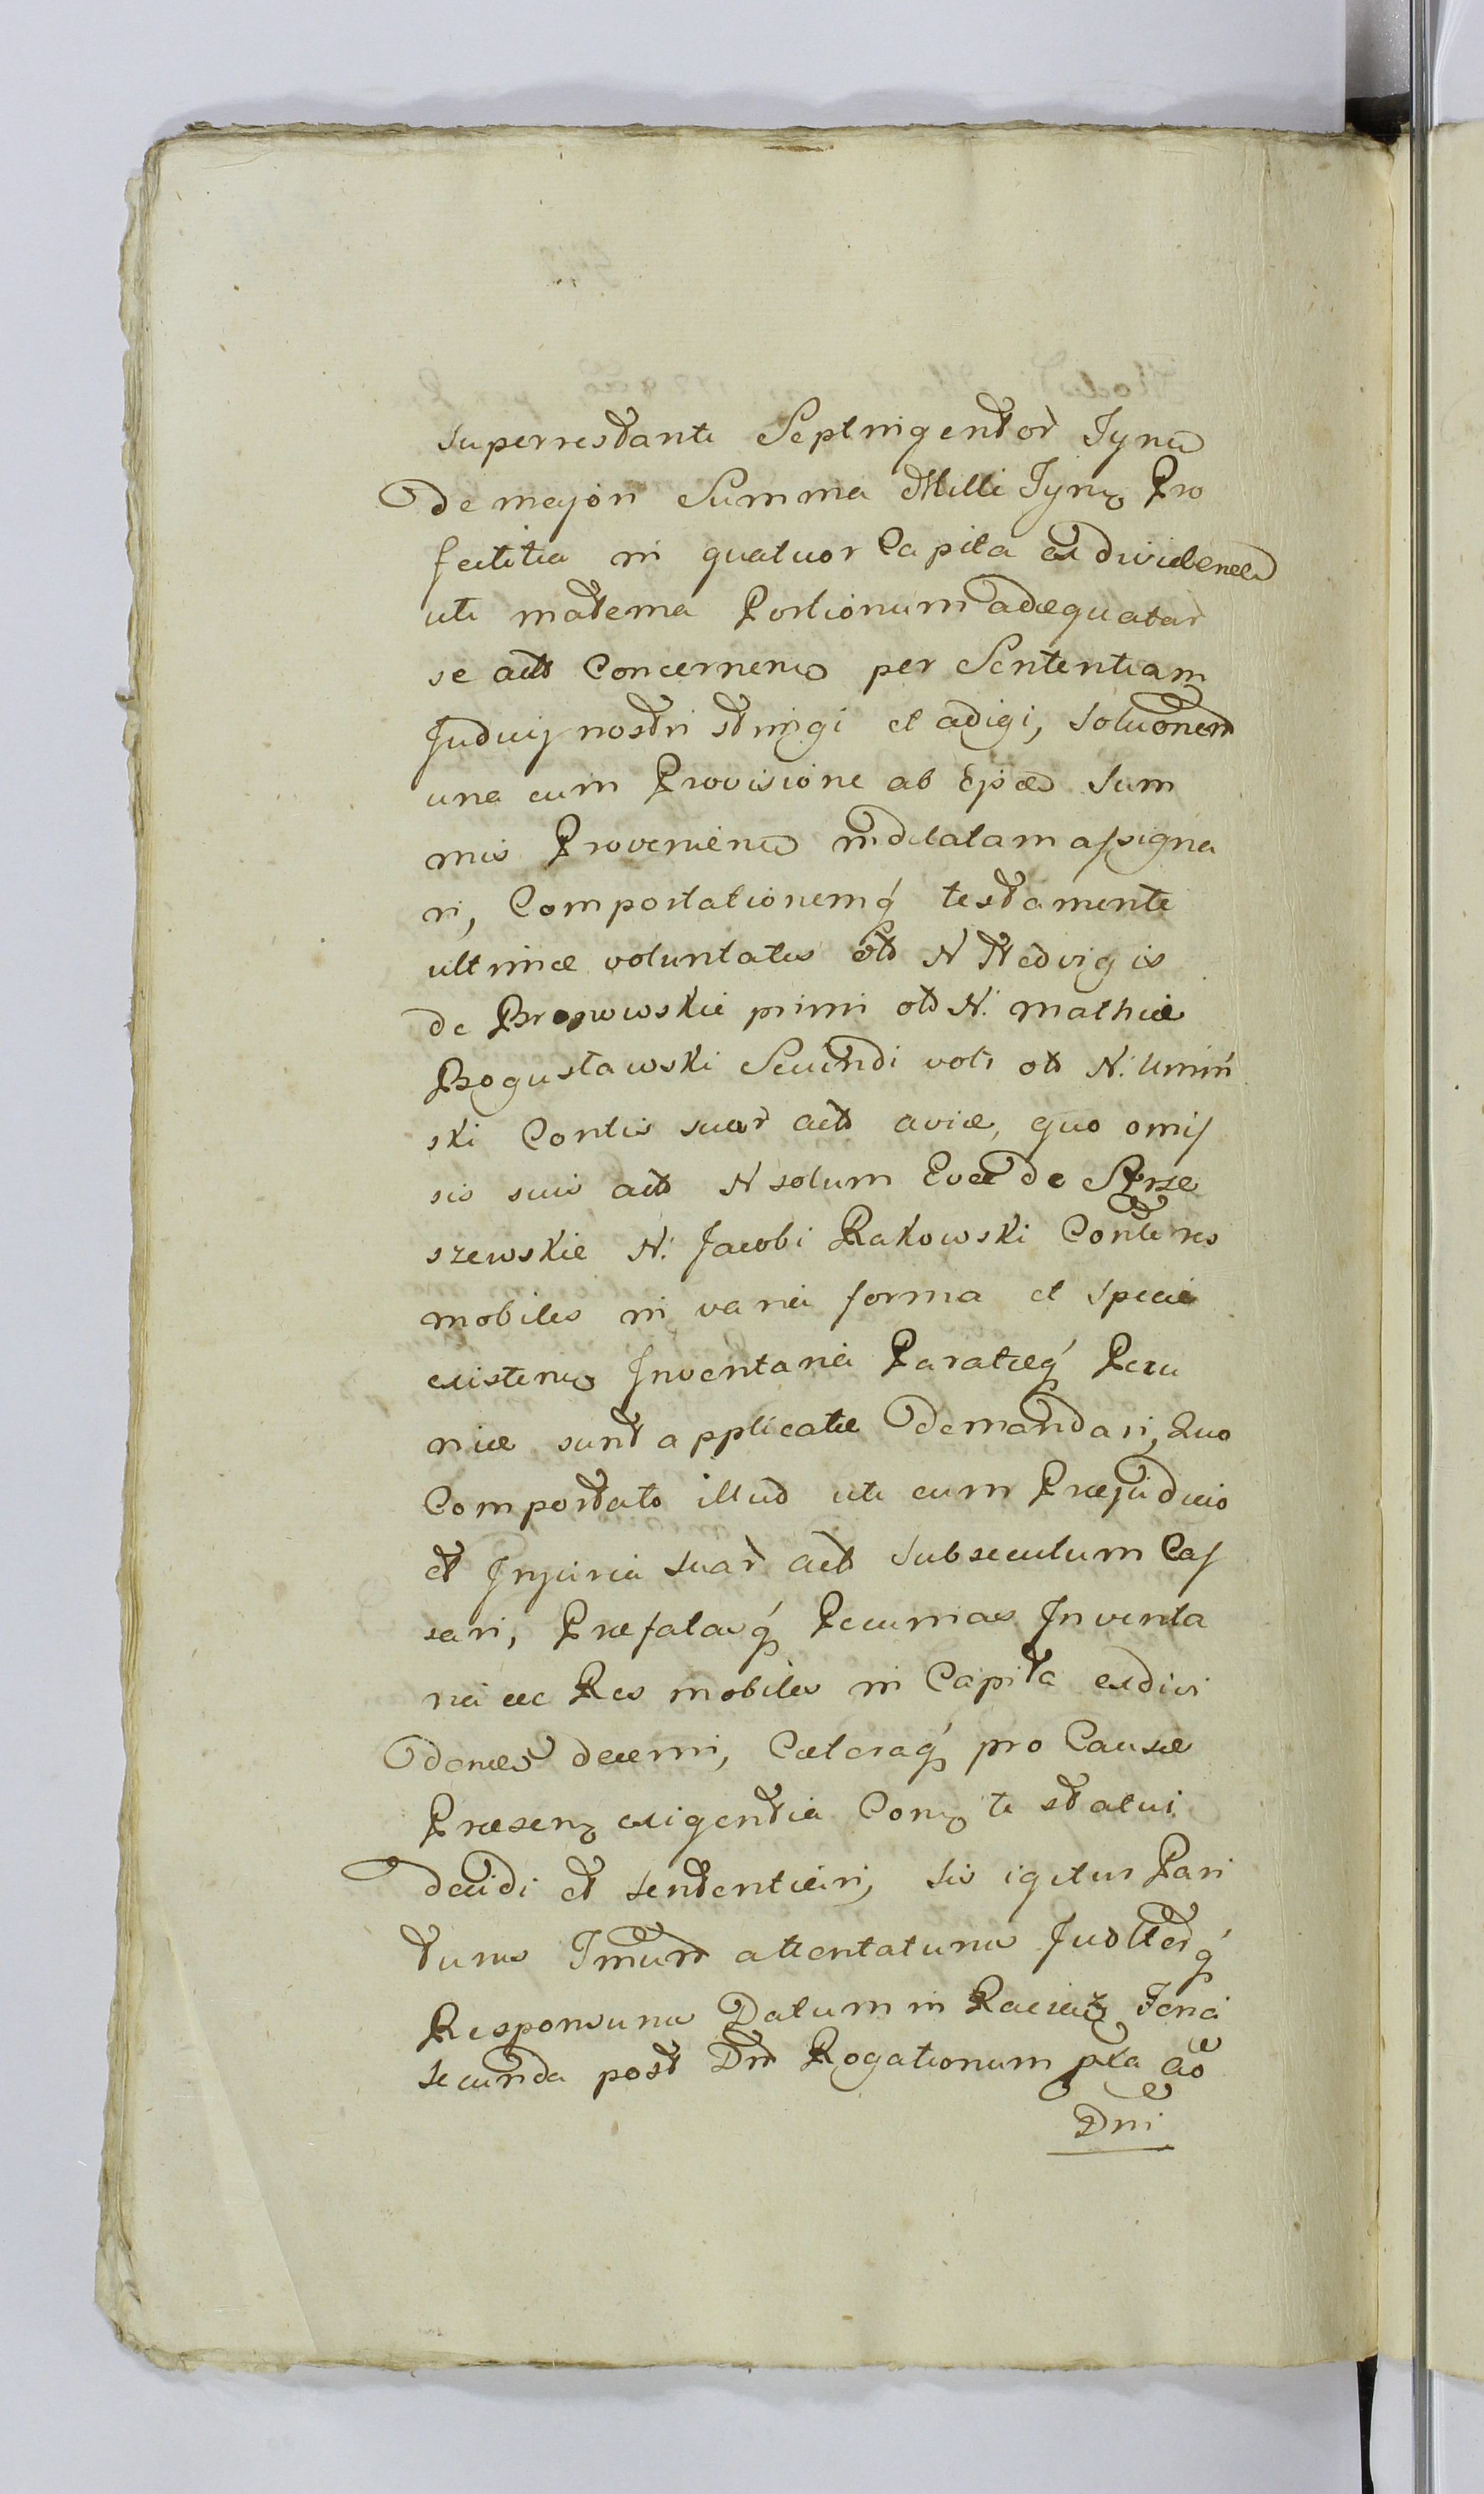 superrestante Septingentor Tynis
de majori Summa Mille Tynf Pro
fectitia in quatuor Capita ex dividend
uti materna Portionum adæquatar
se act Concernens per Sententiam
Judicij nostri stringi et adigi, solutionem
una cum Provisione ab Ejsd Sum
mis Provenien indilatam assigna
ri, Comportationemq́ testamenti
ultimæ voluntatis olt N Hedvigis
de Bromowskie primi olt N. Mathiæ
Bogusławski Secundi voti olt N. Umiń
ski Contis suar act aviæ, quo omis
sis suis act N solum Evæ de Strze
szewskie N. Jacobi Rakowski Conti res
mobiles in varia forma et specie
existenf Inventaria Paratæq́ Pecu
niæ sunt applicatæ demandari, Quo
Comportato illud uti cum Præjudicio
et Injuria suar act subsecutum Cas
sari, Præfatasq́ Pecunias Inventa
ria ac Res mobiles in Capita exdivi
dendas decerni, Cæteraq́ pro Causæ
Præsenf exigentia Conf te statui
decidi et sententiari, sis igitur Pari
turus Tmum attentaturus Judtterq́
Responsurus Datum in Raciąż Feria
secunda post Dm Rogationum pxa Ao
Dni